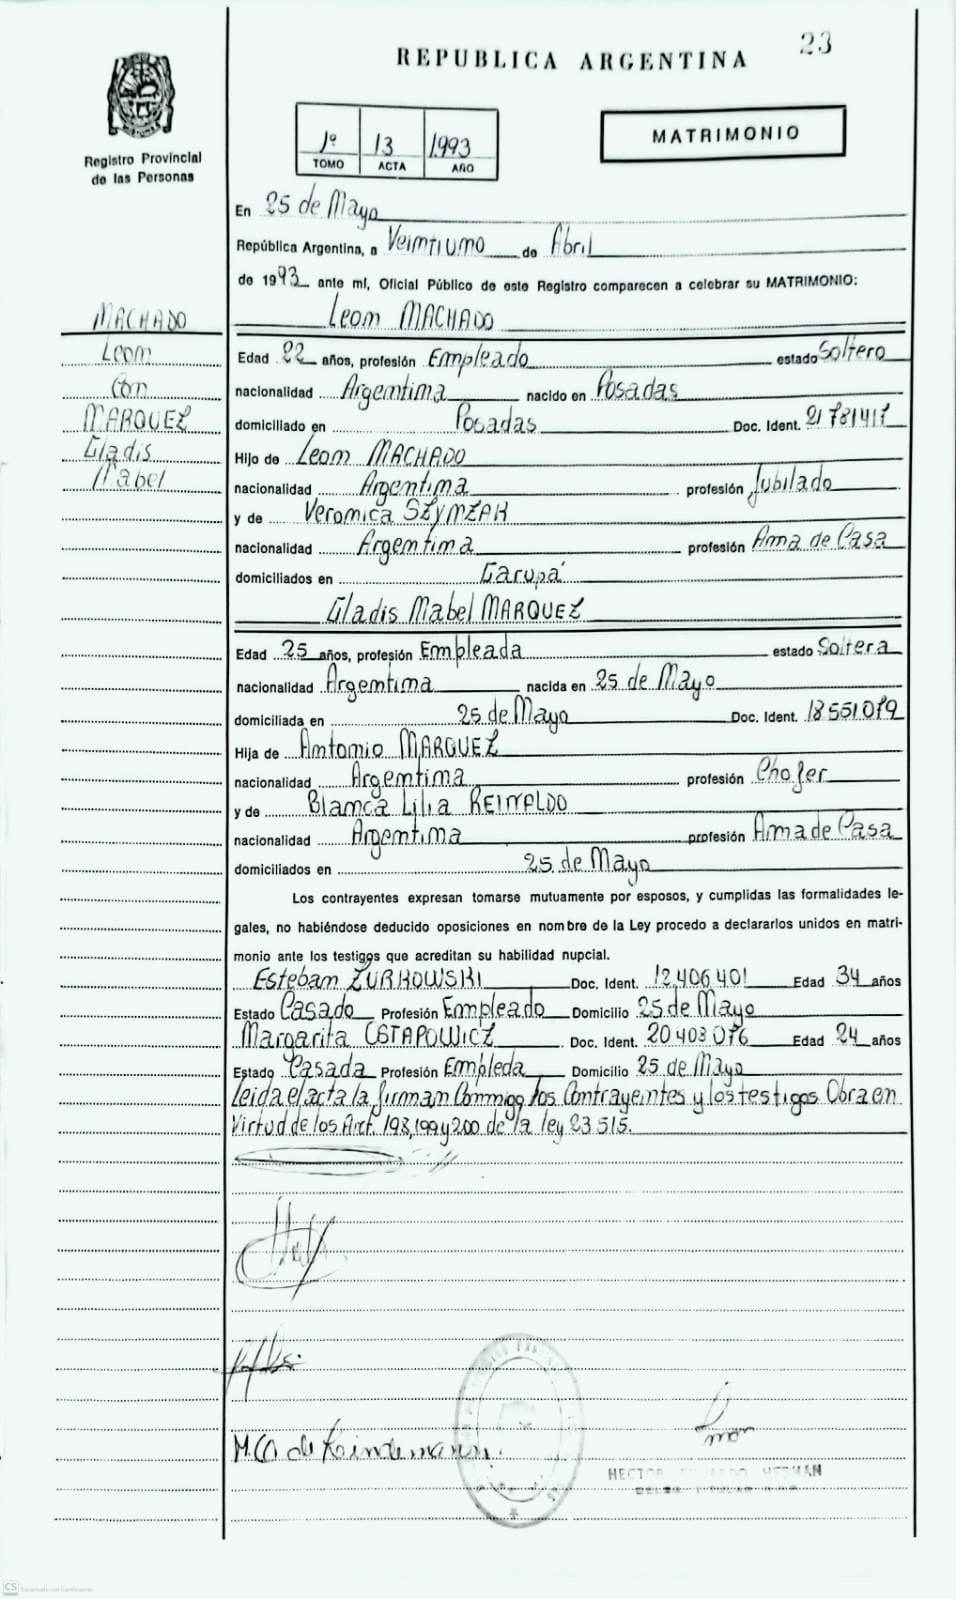 23
REPUBLICA ARGENTINA
Registro Provincial
de las Personas
1º 13 1.993
TOMO ACTA AÑO
MATRIMONIO
En 25 de Mayo
República Argentina, a Veimtiumo de Abril
de 1993 ante mí, Oficial Público de este Registro comparecen a celebrar su MATRIMONIO:
MACHADO
Leom
Con
MARQUEZ
Gladis
Mabel
Leom MACHADO
Edad 22 años, profesión Empleado estado Soltero
nacionalidad Argemtima nacido en Posadas
domiciliado en Posadas Doc. Ident. 21781417
Hijo de Leom MACHADO
nacionalidad Argemtima profesión Jubilado
y de Veromica SZYMZAK
nacionalidad Argemtima profesión Ama de Casa
domiciliados en Garupá
Gladis Mabel MARQUEZ
Edad 25 años, profesión Empleada estado Soltera
nacionalidad Argemtima nacida en 25 de Mayo
domiciliada en 25 de Mayo Doc. Ident. 18551079
Hija de Amtomio MARQUEZ
nacionalidad Argemtima profesión Chofer
y de Blamca Lilia REINALDO
nacionalidad Argemtima profesión Ama de Casa
domiciliados en 25 de Mayo
Los contrayentes expresan tomarse mutuamente por esposos, y cumplidas las formalidades le-
gales, no habiéndose deducido oposiciones en nombre de la Ley procedo a declararlos unidos en matri-
monio ante los testigos que acreditan su habilidad nupcial.
Estebam ZURKOWSKI Doc. Ident. 12.406.401 Edad 34 años
Estado Casado Profesión Empleado Domicilio 25 de Mayo
Margarita OSTAPOWICZ Doc. Ident. 20403076 Edad 24 años
Estado Casada Profesión Empleda Domicilio 25 de Mayo
Leida el acta la firmam Commigo los Contrayeintes y los testigos Obra en
Virtud de los Art. 198,199 y 200 de la ley 23515.
M.O de Lindemann
HECTOR HERMAN
TITULAR
CS